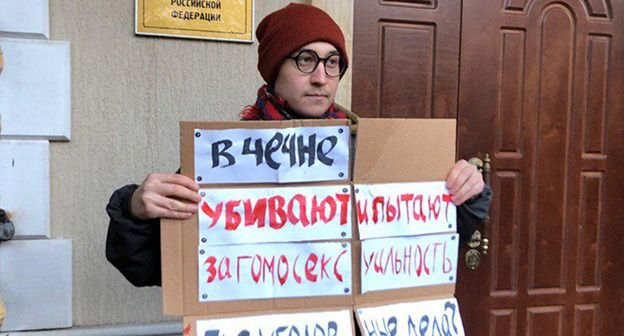 РОССИЙСКОЙ
ФЕДЕРАЦИИ
В ЧЕЧНЕ
УБИВАЮТ И ПЫТАЮТ
ЗА ГОМОСЕКСУАЛЬНОСТЬ
УГОЛОВНЫЕ ДЕЛА